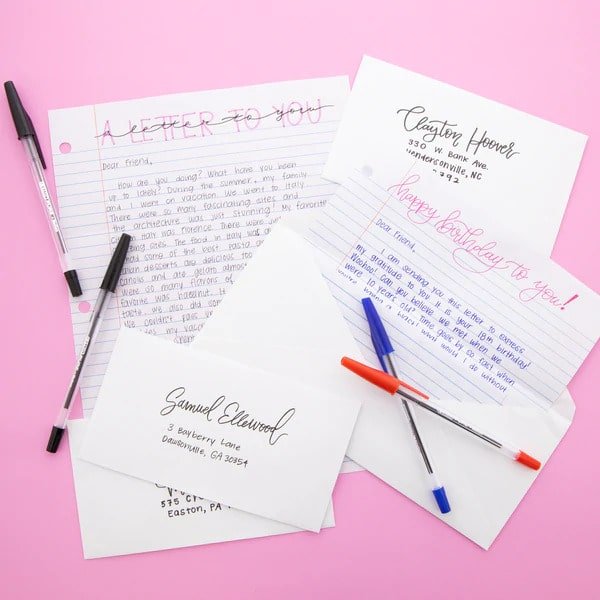 A LETTER TO YOU
a letter to you
Dear Friend,
How are you doing? What have you been
up to lately? During the summer, my family
and I went on vacation. We went to Italy.
There were so many fascinating sites and
the architecture was just stunning! My favorite
was Florence. There were
sites. The food in Italy was
had some of the best pasta
desserts are delicious too
and ate gelato almost
were so many flavors
favorite was hazelnut. It
taste. We also did some
We couldn't
my vacation
Clayton Hoover
330 W. Bank Ave.
Hendersonville, NC
792
happy birthday to you!
Dear Friend,
I am sending you this letter to express
my gratitude to you. It is your 18th birthday!
Woohoo! Can you believe we met when we
were 10 years old? Time goes by so fast when
what would I do without
Samuel Ellewood
3 Bayberry Lane
Dawsonville, GA 30354
575
Easton, PA